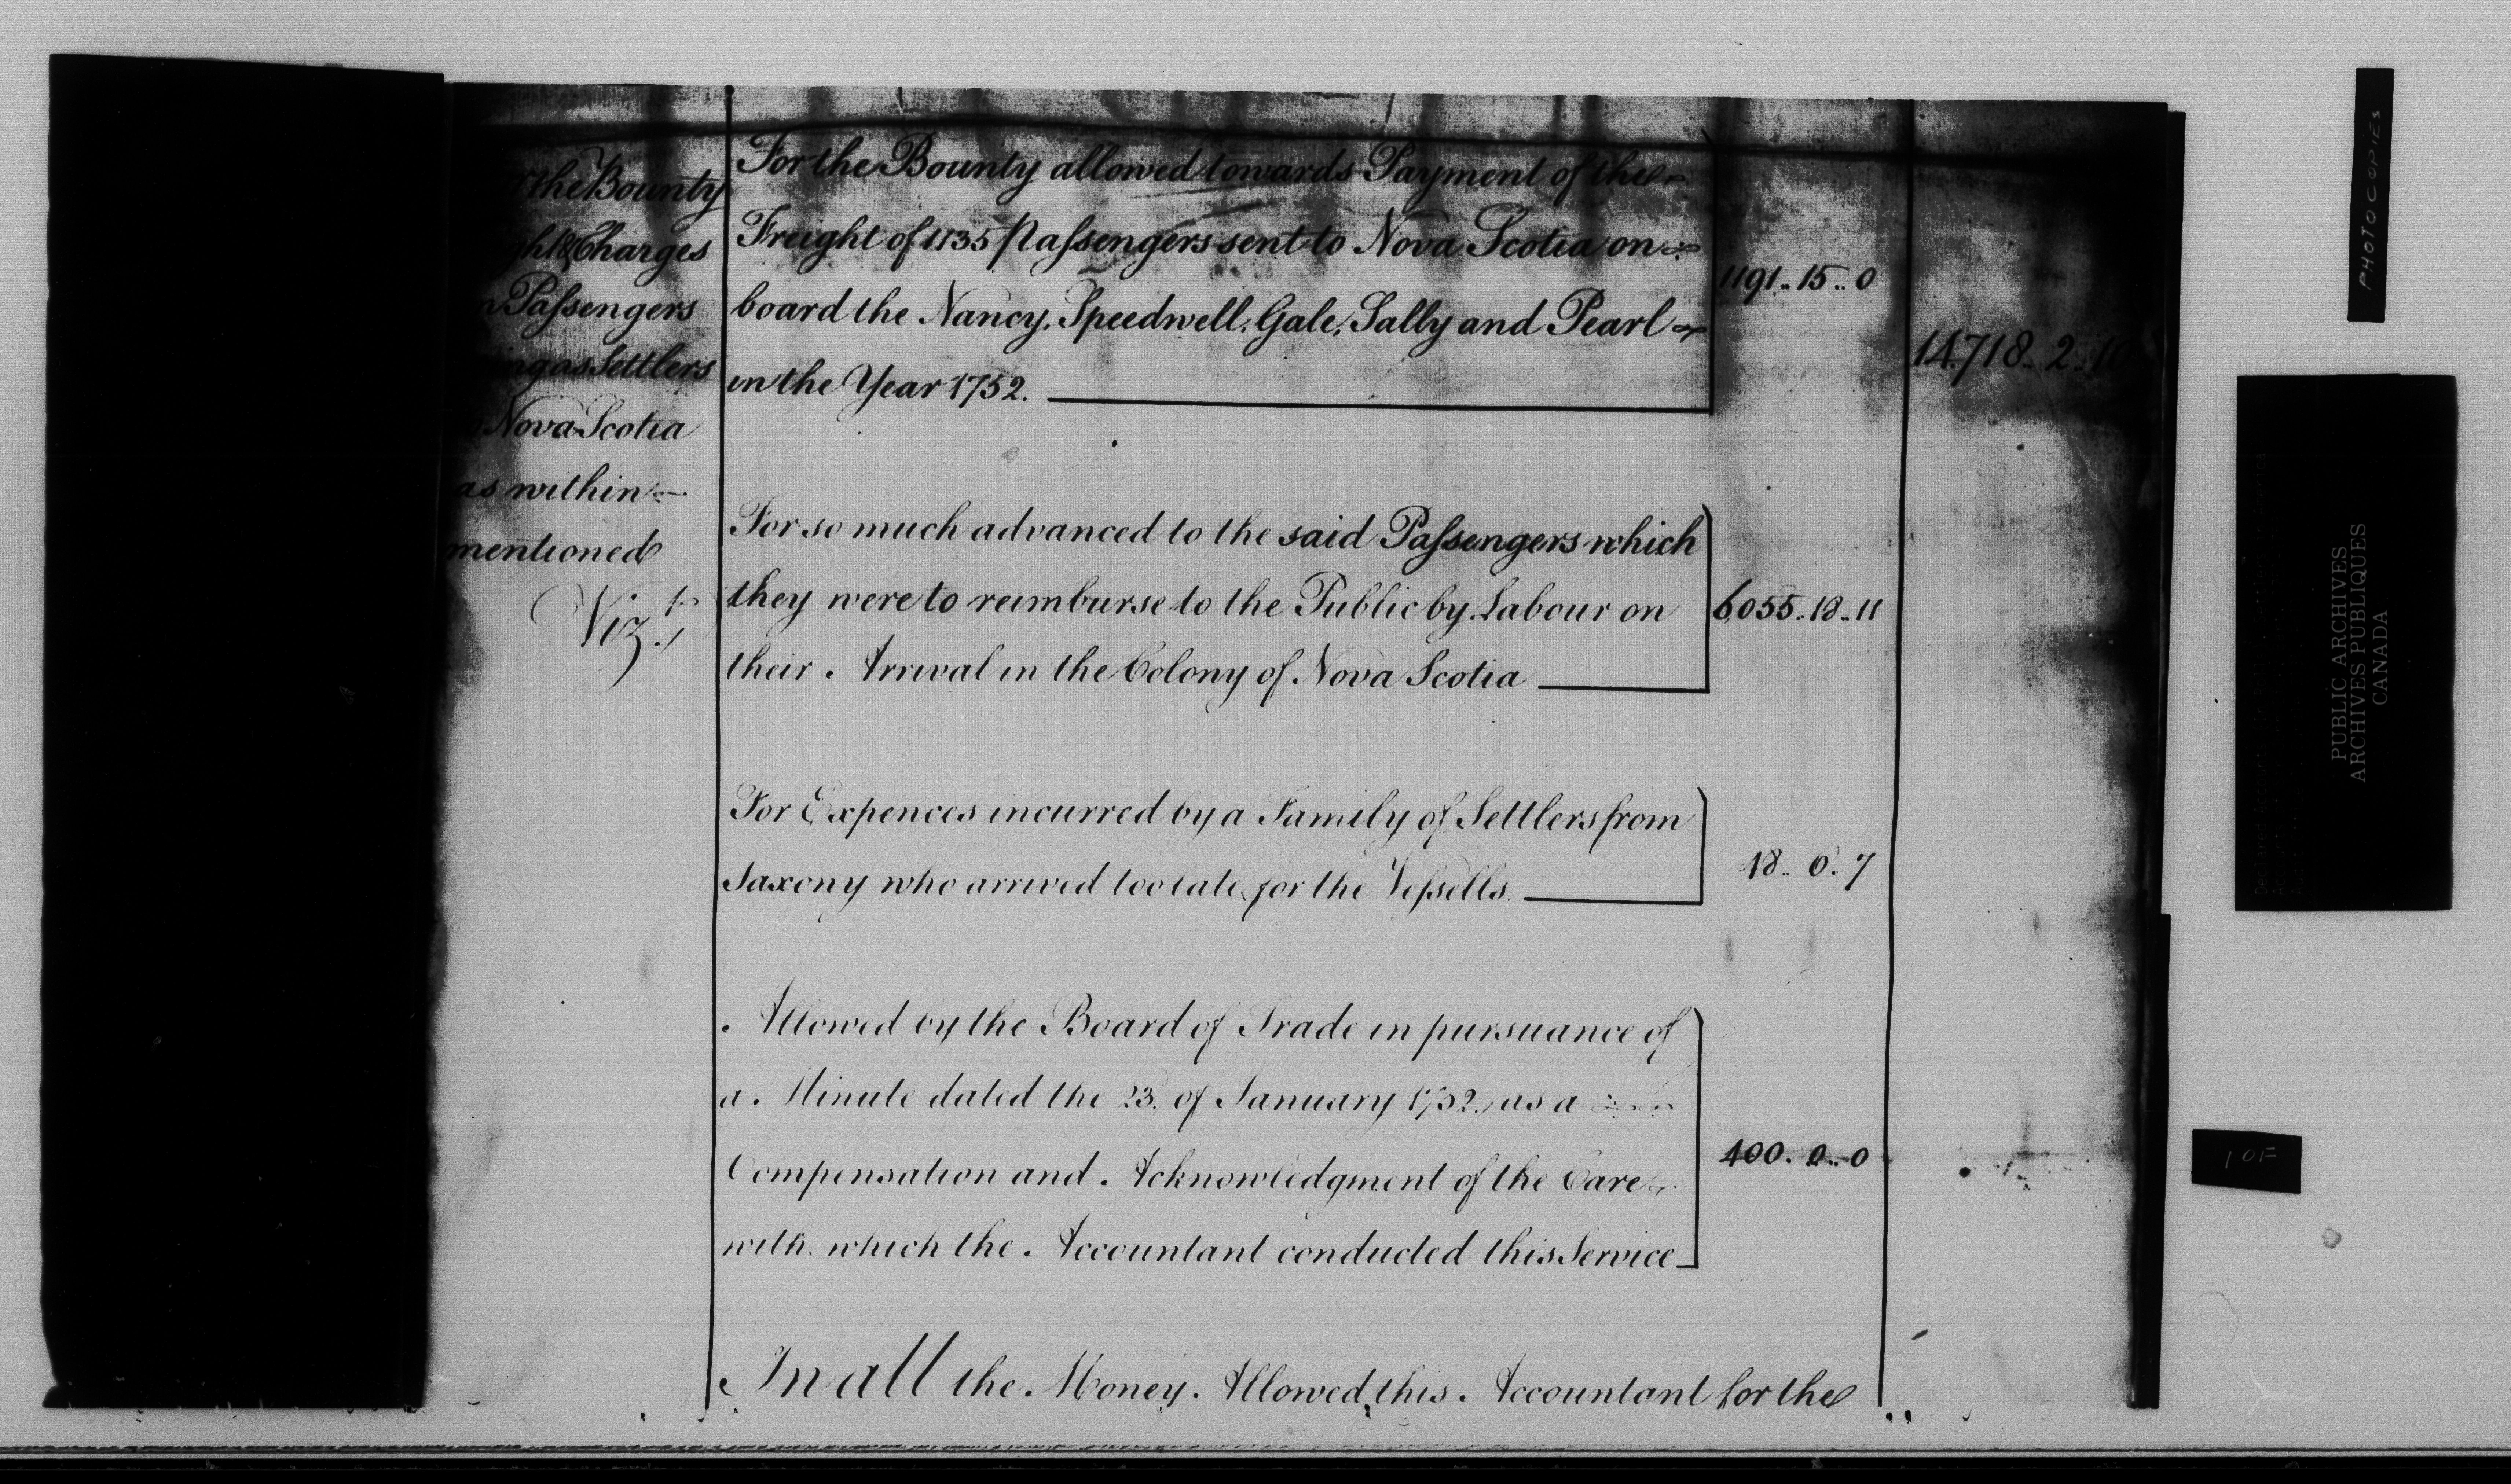 the Bounty
& Charges
Passengers
as Settlers
Nova Scotia
as within
mentioned
Vizt.
For the Bounty allowed towards Payment of the
Freight of 1135 Passengers sent to Nova Scotia on
board the Nancy, Speedwell, Gale, Sally and Pearl
in the Year 1752.
1191..15..0
14.718..2..
For so much advanced to the said Passengers which
they were to reimburse to the Public by Labour on
their Arrival in the Colony of Nova Scotia
6,055..18..11
For Expences incurred by a Family of Settlers from
Saxony who arrived too late for the Vessells.
18..0..7
Allowed by the Board of Trade in pursuance of
a Minute dated the 23d. of January 1752, as a
Compensation and Acknowledgment of the Care
with which the Accountant conducted this Service
400..0..0
In all the Money Allowed this Accountant for the
PHOTOCOPIES
PUBLIC ARCHIVES
ARCHIVES PUBLIQUES
CANADA